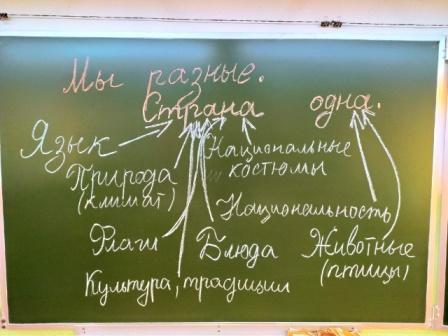 Мы разные.
Страна одна.
Язык
Национальные
костюмы
Природа
(климат)
Национальность
Флаги
Блюда
Животные
(птицы)
Культура, традиции